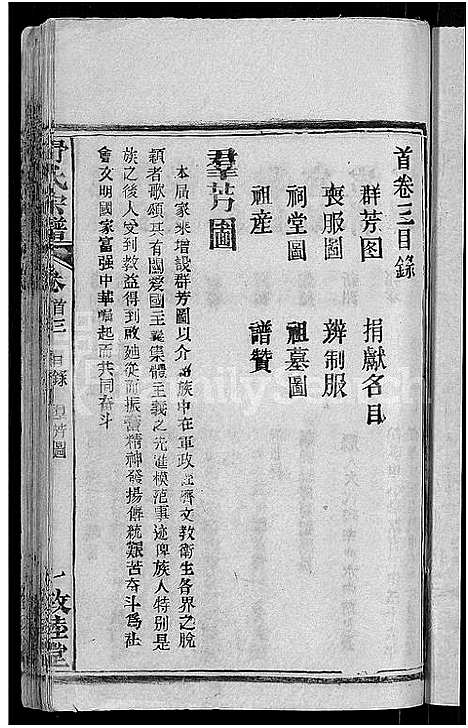 首卷三目錄
群芳图 捐獻名目
喪服圖 辨制服
祠堂圖 祖墓圖
祖産 譜贊
羣芳圖
本届家乘增設群芳圖以介紹族中在軍政經濟文教衛生各界之脫
穎者歌頌其有關愛國主義集體主義之先進模范事迹俾族人特别是
族之後人受到教益得到啟廸從而振奮精神發揚傳統艱苦奋斗為社
會文明國家富强中華崛起而共同奋斗
氏宗譜 卷首三 目錄 群芳圖 一 敦睦堂